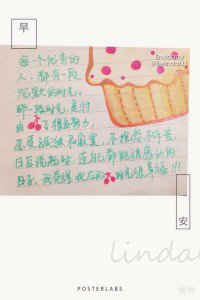 早
每个优秀的
人，都有一段
沉默的时光。
那一段时光，是付
出了很多努力，
忍受孤独和寂寞，不抱怨不诉苦
日后说起时，连自己都能被感动的
日子，
时光很幸福！！！
安
linda
POSTERLABS